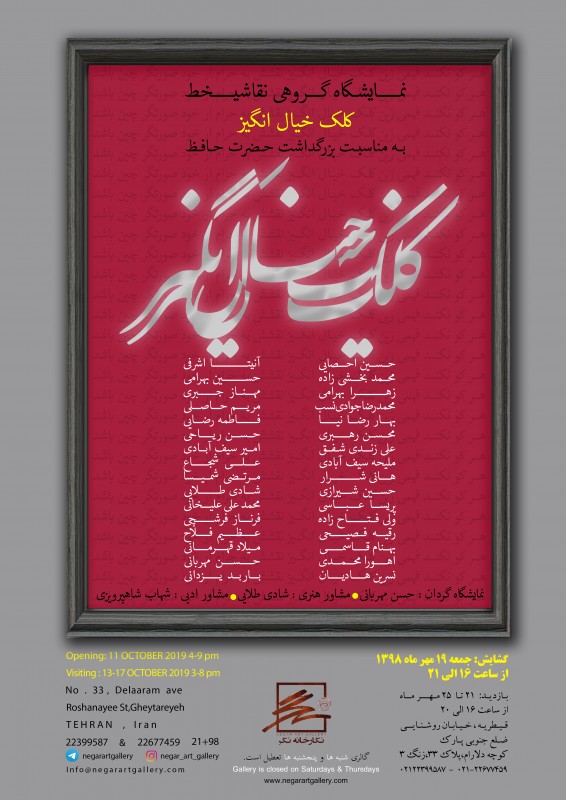 نمایشگاه گروهی نقاشیخط
کلک خیال انگیز
به مناسبت بزرگداشت حضرت حافظ
کلک خیال انگیز
حسین احصایی
محمد بخشی زاده
زهرا بهرامی
محمدرضا جوادی نسب
بهار رضا نیا
محسن رهبری
علی زندی شفق
ملیحه سیف آبادی
هانی شرار
حسین شیرازی
پریسا عباسی
ولی فتاح زاده
رقیه فصیحی
بهنام قاسمی
اهورا محمدی
نسرین هادیان
آنیتا اشرفی
حسین بهرامی
مهناز جیری
مریم حاصلی
فاطمه رضایی
حسن ریاحی
امیر سیف آبادی
علی شجاع
مرتضی شمیسا
شادی طلایی
محمد علی علیخانی
فرناز فرشچی
عظیم فلاح
میلاد قهرمانی
حسن مهربانی
باربد یزدانی
نمایشگاه گردان : حسن مهربانی • مشاور هنری : شادی طلایی • مشاور ادبی : شهاب شاهپرویزی
گشایش: جمعه ۱۹ مهر ماه ۱۳۹۸
از ساعت ۱۶ الی ۲۱
بازدید: ۲۱ تا ۲۵ مهر ماه
از ساعت ۱۶ الی ۲۰
قیطریه، خیابان روشنایی
ضلع جنوبی پارک
کوچه دلارام، پلاک ۳۳، زنگ ۳
۰۲۱-۲۲۶۷۷۴۵۹ - ۰۲۱۲۲۳۹۹۵۸۷
Opening: 11 OCTOBER 2019 4-9 pm
Visiting : 13-17 OCTOBER 2019 3-8 pm
No . 33 , Delaaram ave
Roshanayee St,Gheytareyeh
TEHRAN , Iran
22399587 & 22677459 21+98
negarartgallery negar_art_gallery
Info@negarartgallery.com
نگارخانه نگر
گالری شنبه ها و پنجشنبه ها تعطیل است.
Gallery is closed on Saturdays & Thursdays
www.negarartgallery.com